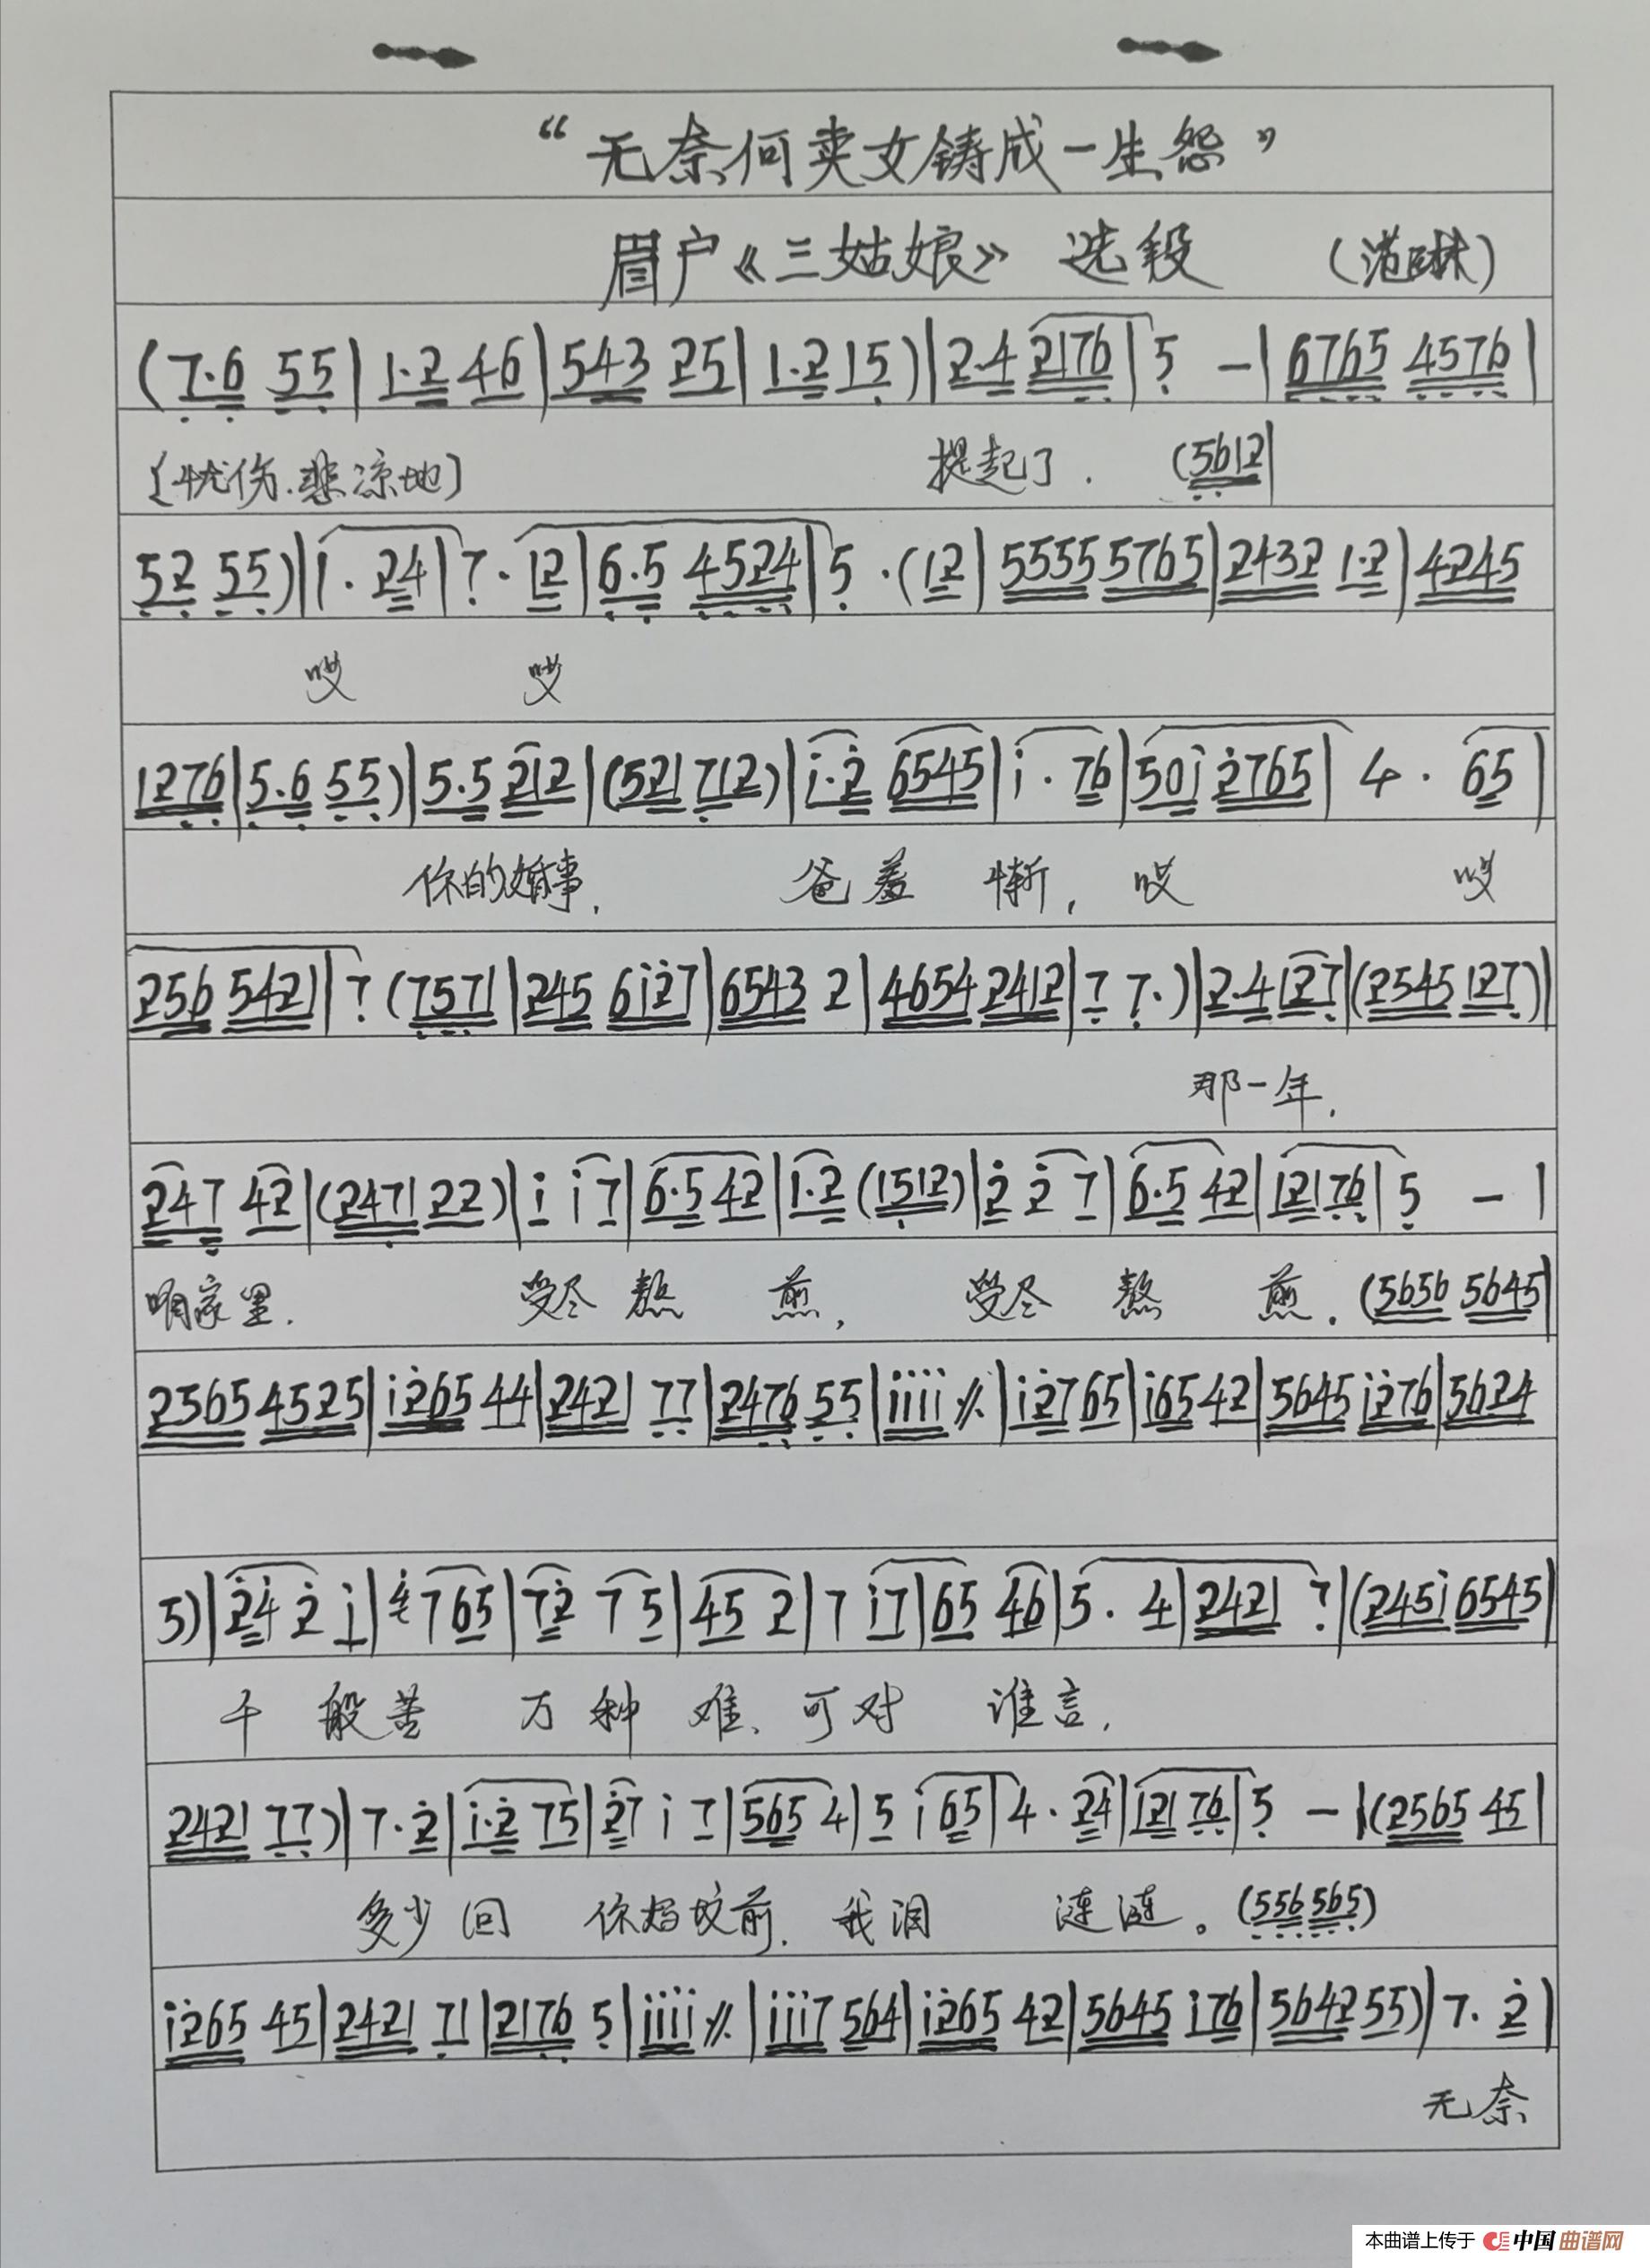 “无奈何卖女铸成一生怨”
眉户《三姑娘》 选段 (范琳)
(7·6 55|1·2 46|543 25|1·2 15)|2·4 2176|5 -|6765 4576|
(忧伤.悲凉地) 提起了. (5612|
52 55)|1·24|7·12|6·5 4524|5·(12|5555 5765|2432 1·2|4245
哎 哎
1276|5·6 55)|5·5 212|(521 712)|i·2̇ 6545|i·76|50i 2̇765|4·65|
你的婚事, 爸羞惭, 哎 哎
256 5421|7 (7571|245 6i2̇7|6543 2|4654 2412|7 7·)|2·4 127|(2545 127)|
那一年,
247 42|(2471 22)|i i7|6·5 42|1·2 (1512)|2̇ 2̇ 7|6·5 42|12176|5 -|
咱家里. 受尽熬煎, 受尽熬煎. (5656 5645|
2565 4525|i2̇65 44|2421 77|2476 55|iiii 〃|i2̇765|i65 42|5645 i2̇76|5624
5)|2̇4̇ 2̇ i|4̇ 765|72̇ 7 5|45 2|7 i7|65 46|5·4|2421 7|(245i 6545|
千般苦 万种难、可对 谁言,
2421 77)|7·2̇|i·2̇ 75|2̇7 i 7|565 4|5 i 65|4·24|121 76|5 -|(2565 45|
多少回 你妈坟前, 我泪 涟涟。(556 565)
i2̇65 45|2421 71|2176 5|iiii 〃|iii7 564|i2̇65 42|5645 i76|5642 55)|7·2̇|
无奈
本曲谱上传于 中国曲谱网